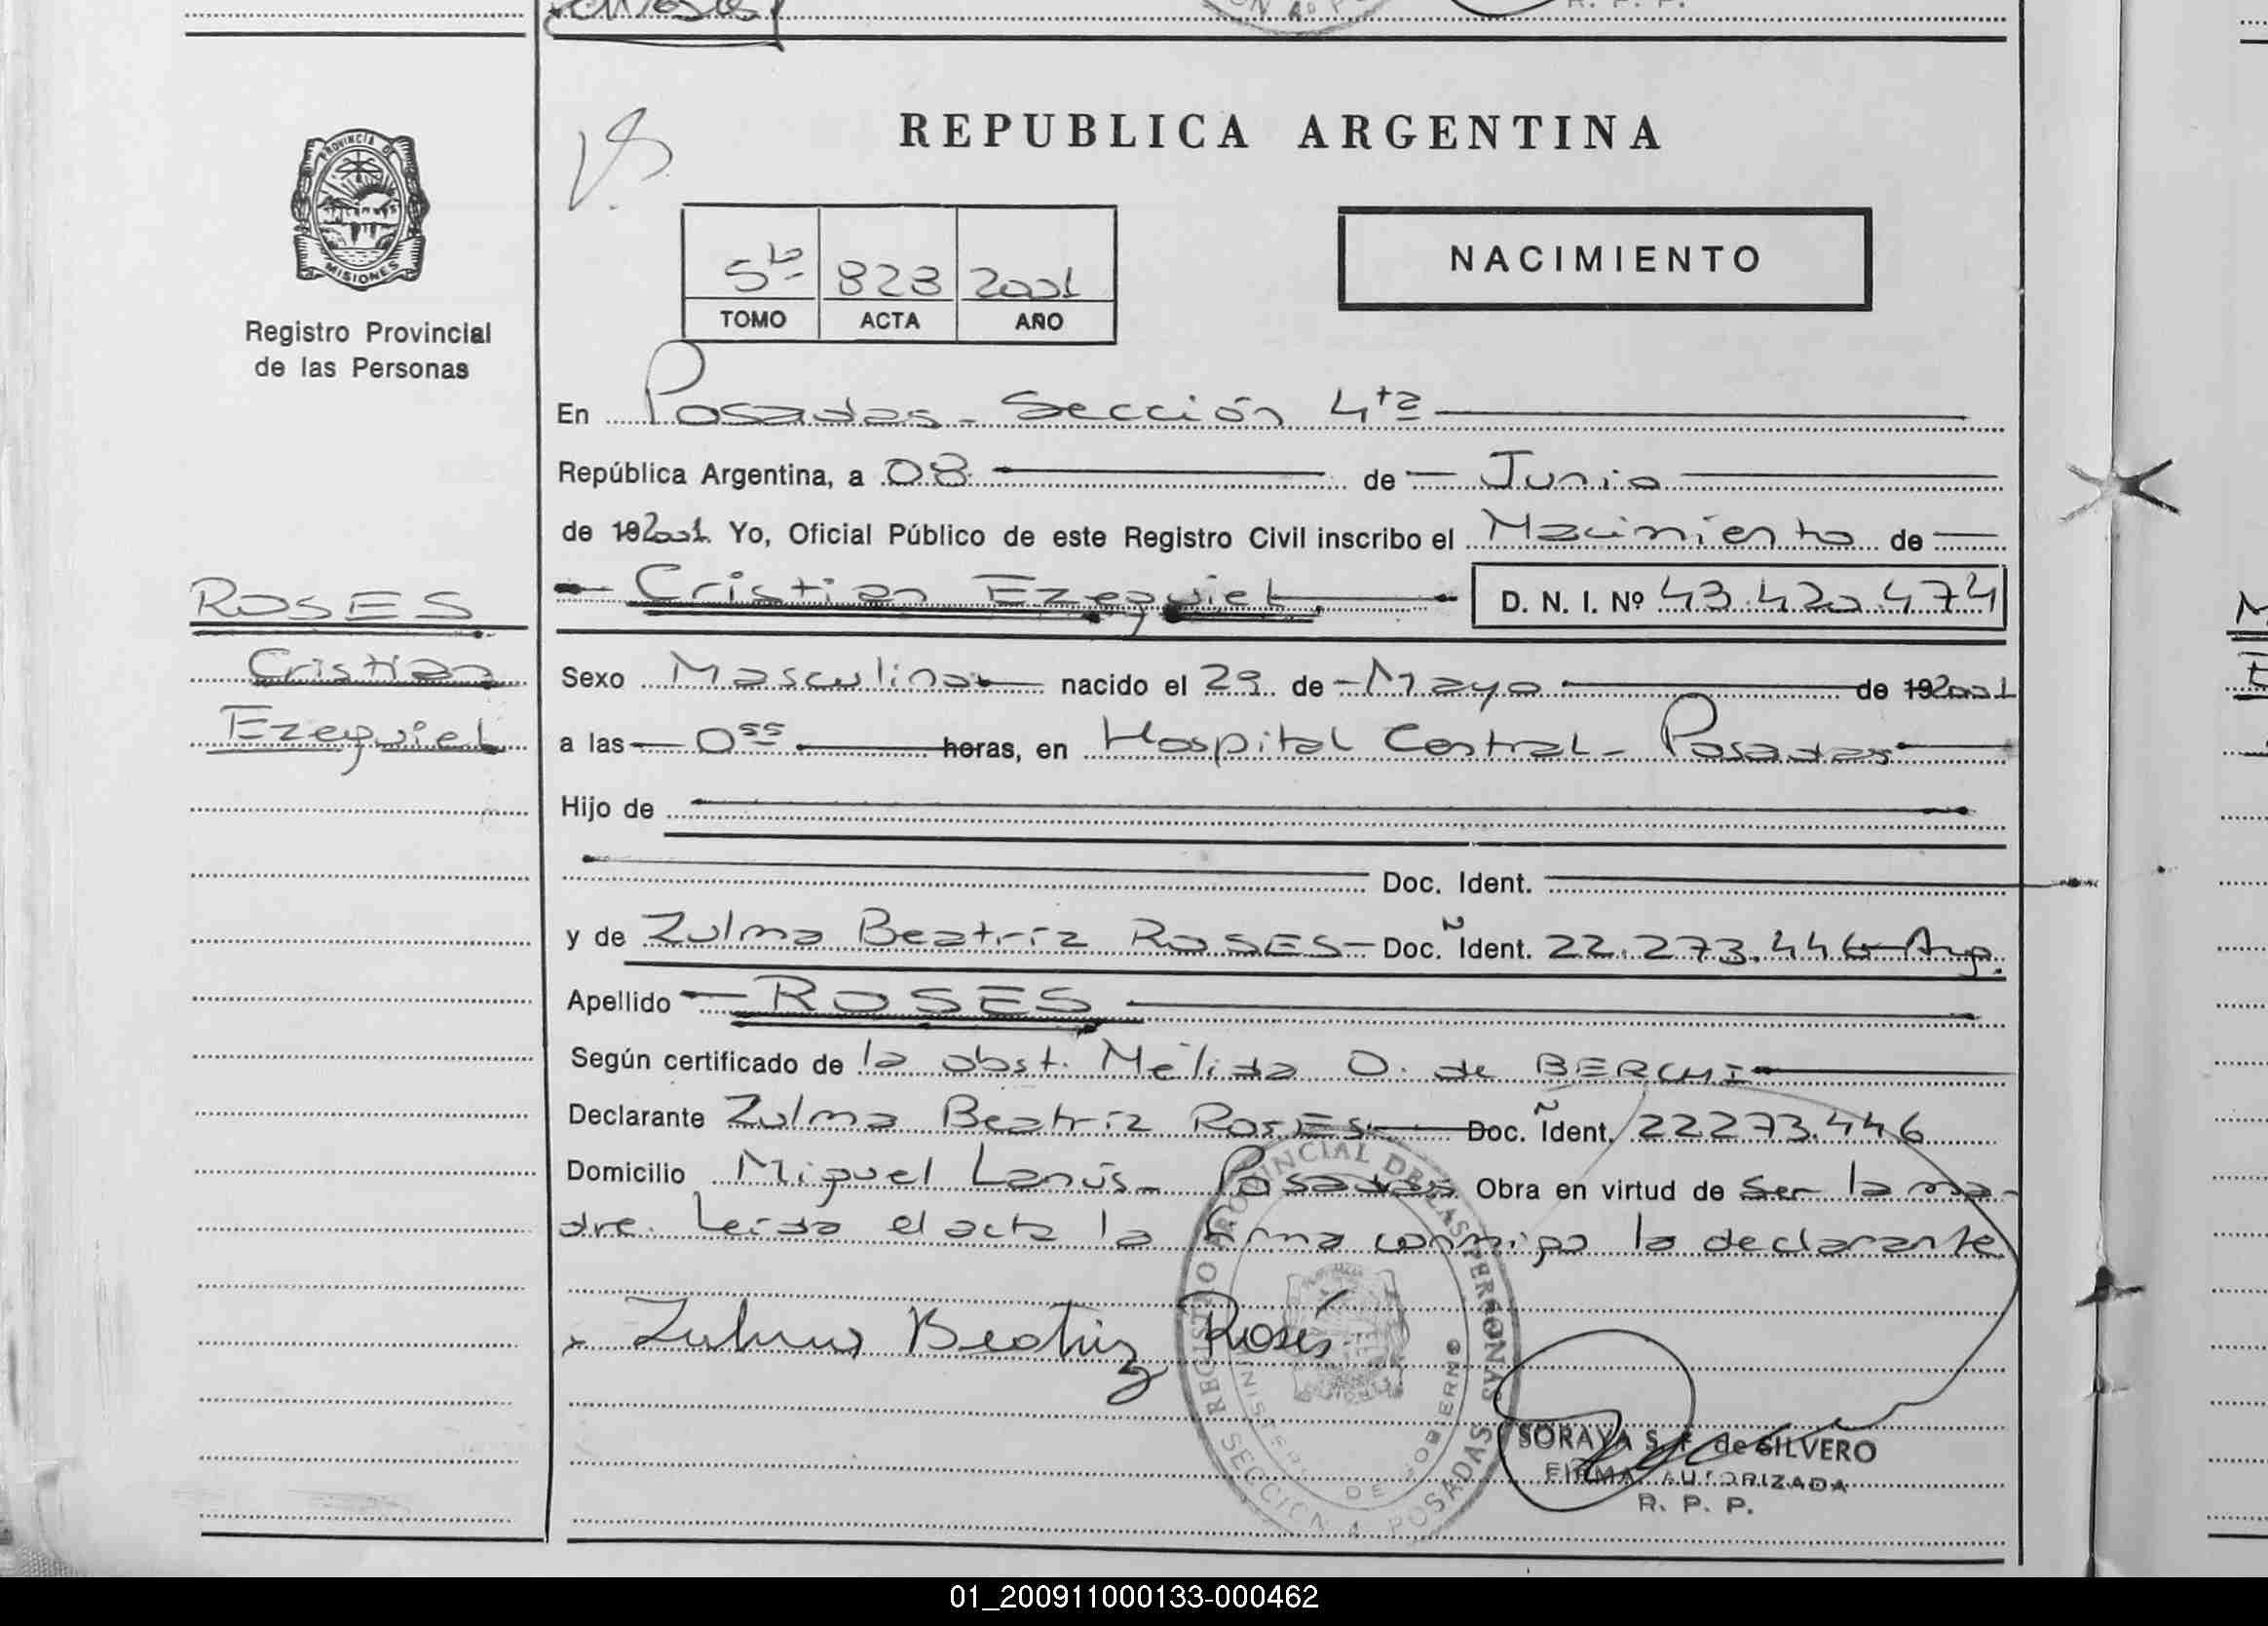 REPUBLICA ARGENTINA
PROVINCIA DE
MISIONES
Registro Provincial
de las Personas
5to 823 2001
TOMO ACTA AÑO
NACIMIENTO
En Posadas - Sección 4ta
República Argentina, a 08 de Junio
de 192001 Yo, Oficial Público de este Registro Civil inscribo el Nacimiento de
Cristian Ezequiel D. N. I. Nº 43.420.474
ROSES
Cristian
Ezequiel
Sexo Masculino nacido el 29 de Mayo de 192001
a las 0 55 horas, en Hospital Central - Posadas
Hijo de
Doc. Ident.
y de Zulma Beatriz ROSES - Doc. Ident. 22.273.446 - Arg.
Apellido ROSES
Según certificado de la obst. Nélida O. de
Declarante Zulma Beatriz ROSES Doc. Ident. 22273.446
Domicilio Miguel Lanús - Posadas Obra en virtud de ser la ma-
dre. Leída el acta la firma conmigo la declarante
Zulma Beatriz Roses
REGISTRO PROVINCIAL DE LAS PERSONAS
MINISTERIO DE GOBIERNO
SECCION 4 POSADAS
SORAYA S. F. de SILVERO
FIRMA AUTORIZADA
R. P. P.
01_200911000133-000462